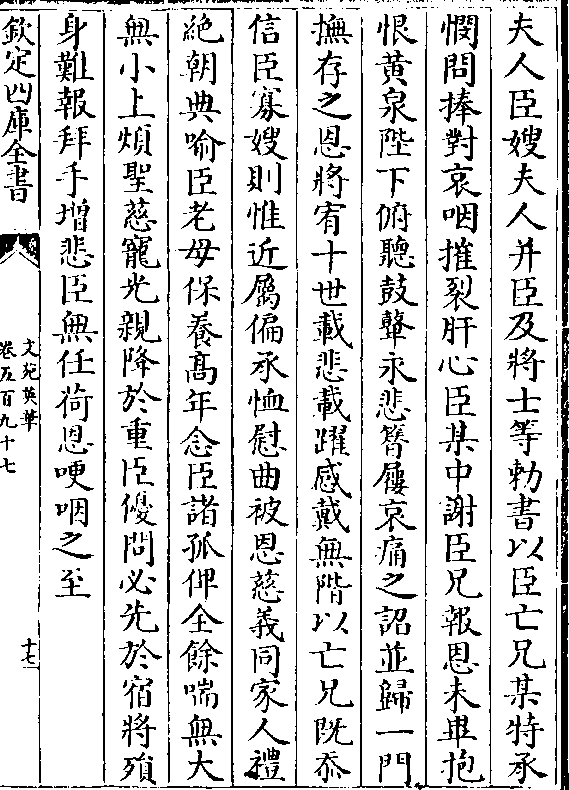 夫人臣嫂夫人并臣及將士等勅書以臣亡兄某特承
憫問捧對哀咽摧裂肝心臣某中謝臣兄報恩未畢抱
恨黄泉陛下俯聽鼓鼙永悲簪屨哀痛之詔並歸一門
撫存之恩將宥十世載悲載躍感戴無階以亡兄既忝
信臣寡嫂則惟近屬偏承恤慰曲被恩慈義同家人禮
絶朝典喻臣老母保養髙年念臣諸孤仰全餘喘無大
無小上煩聖慈寵光親降於重臣優問必先於宿將殞
身難報拜手增悲臣無任荷恩哽咽之至
欽定四庫全書
文苑英華
卷五百九十七
十七